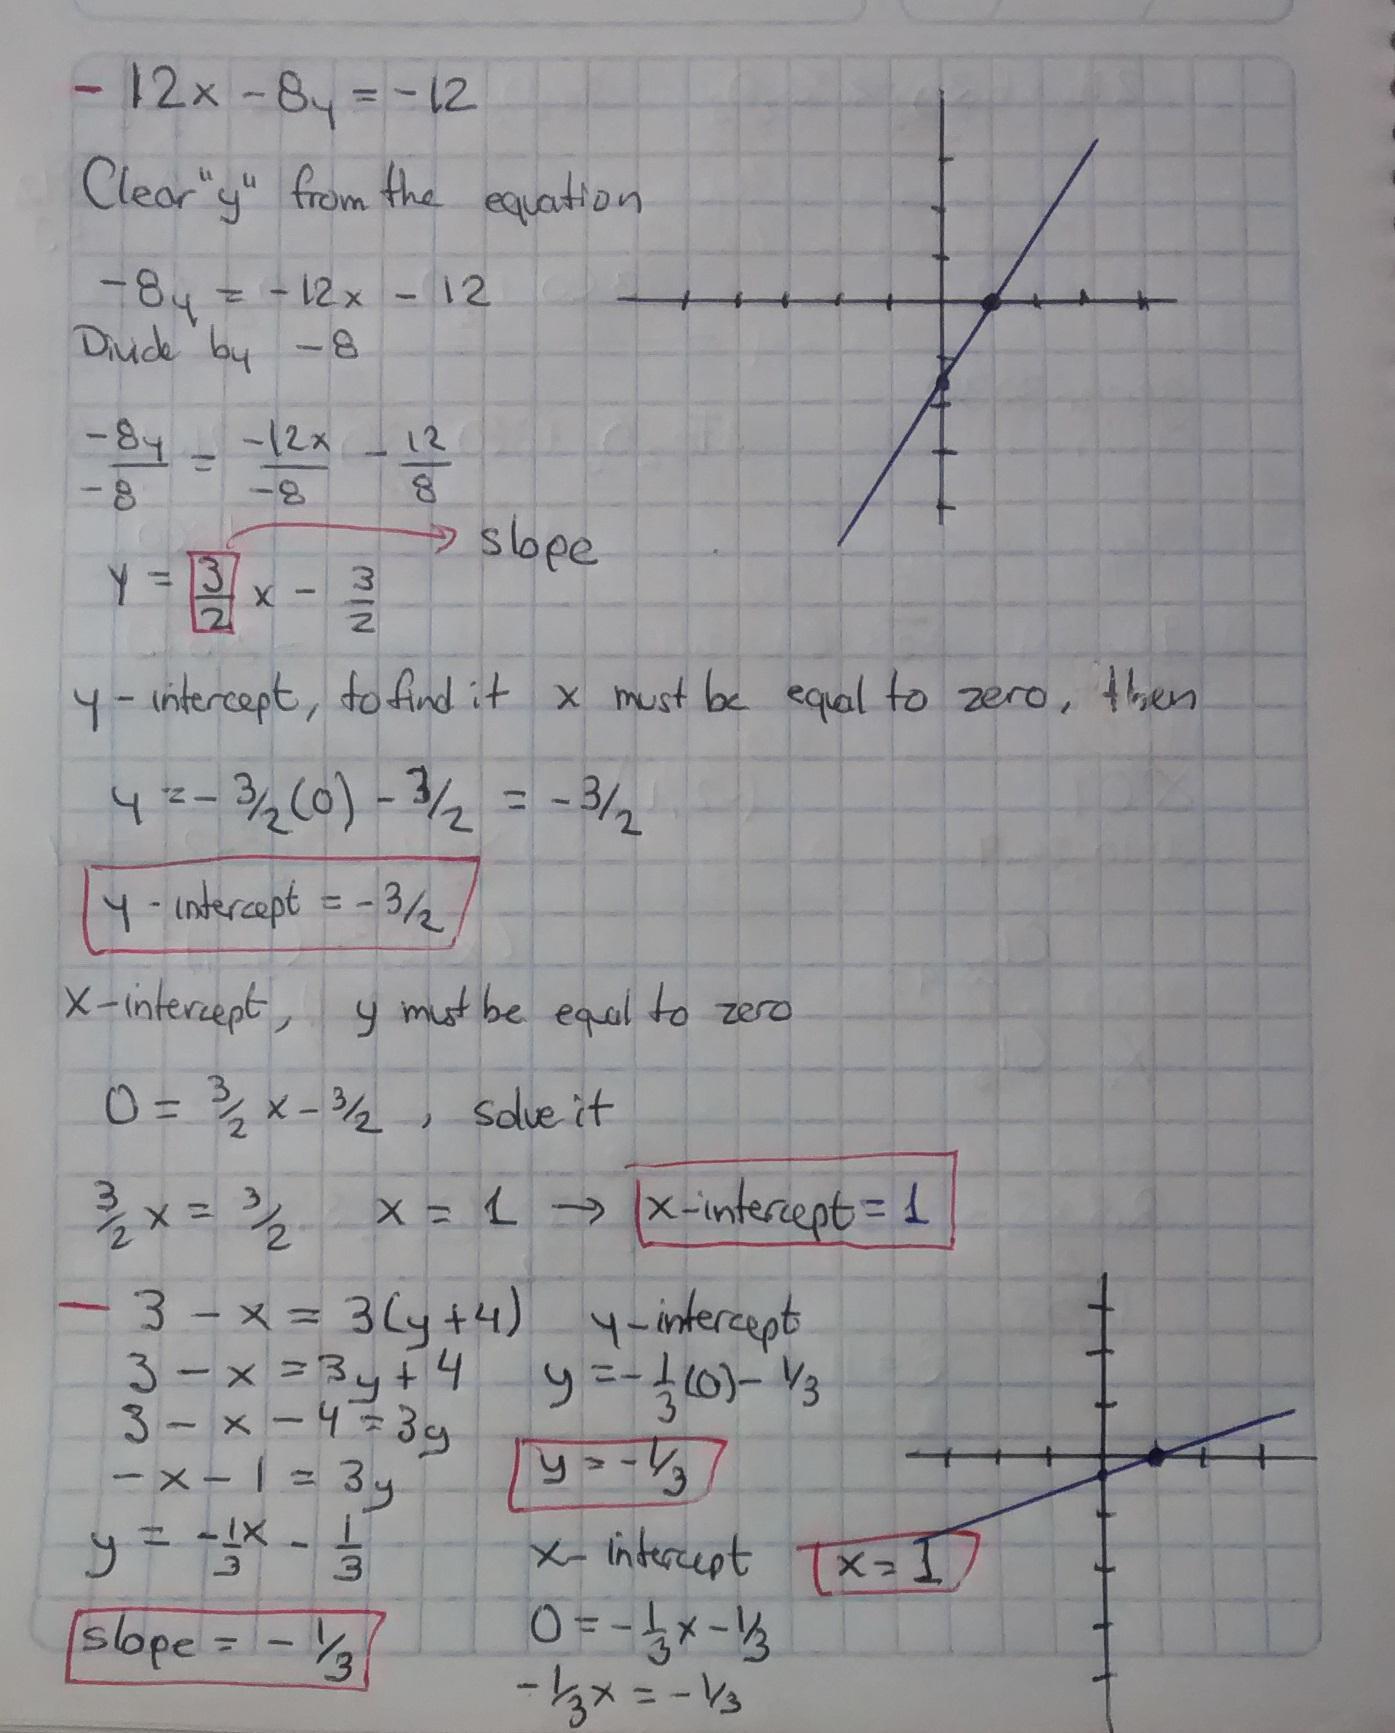 - 12x - 8y = -12
Clear "y" from the equation
-8y = -12x - 12
Divide by -8
-8y/-8 = -12x/-8 - 12/8
slope
y = 3/2 x - 3/2
y-intercept, to find it x must be equal to zero, then
y = - 3/2 (0) - 3/2 = -3/2
y-intercept = -3/2
x-intercept, y must be equal to zero
0 = 3/2 x - 3/2, solve it
3/2 x = 3/2 x = 1 → x-intercept = 1
- 3 - x = 3(y+4)
3 - x = 3y + 4
3 - x - 4 = 3y
- x - 1 = 3y
y = -1/3 x - 1/3
slope = - 1/3
y-intercept
y = -1/3 (0) - 1/3
y = -1/3
x-intercept
x = 1
0 = -1/3 x - 1/3
-1/3 x = -1/3